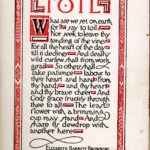 TOIL
What are we set on earth
for? Say to toil
Nor seek to leave thy
tending of the vines
for all the heat of the day
till it declines And death's
curfew shall from work
So others shall
Take patience labor to
their heart and hand
from thy hand and thy heart
and thy brave cheer And
God's grace fructify through
thee to all The least
flower with a brimming
cup may stand And
share its dewdrop with
another near
ELIZABETH BARRETT BROWNING